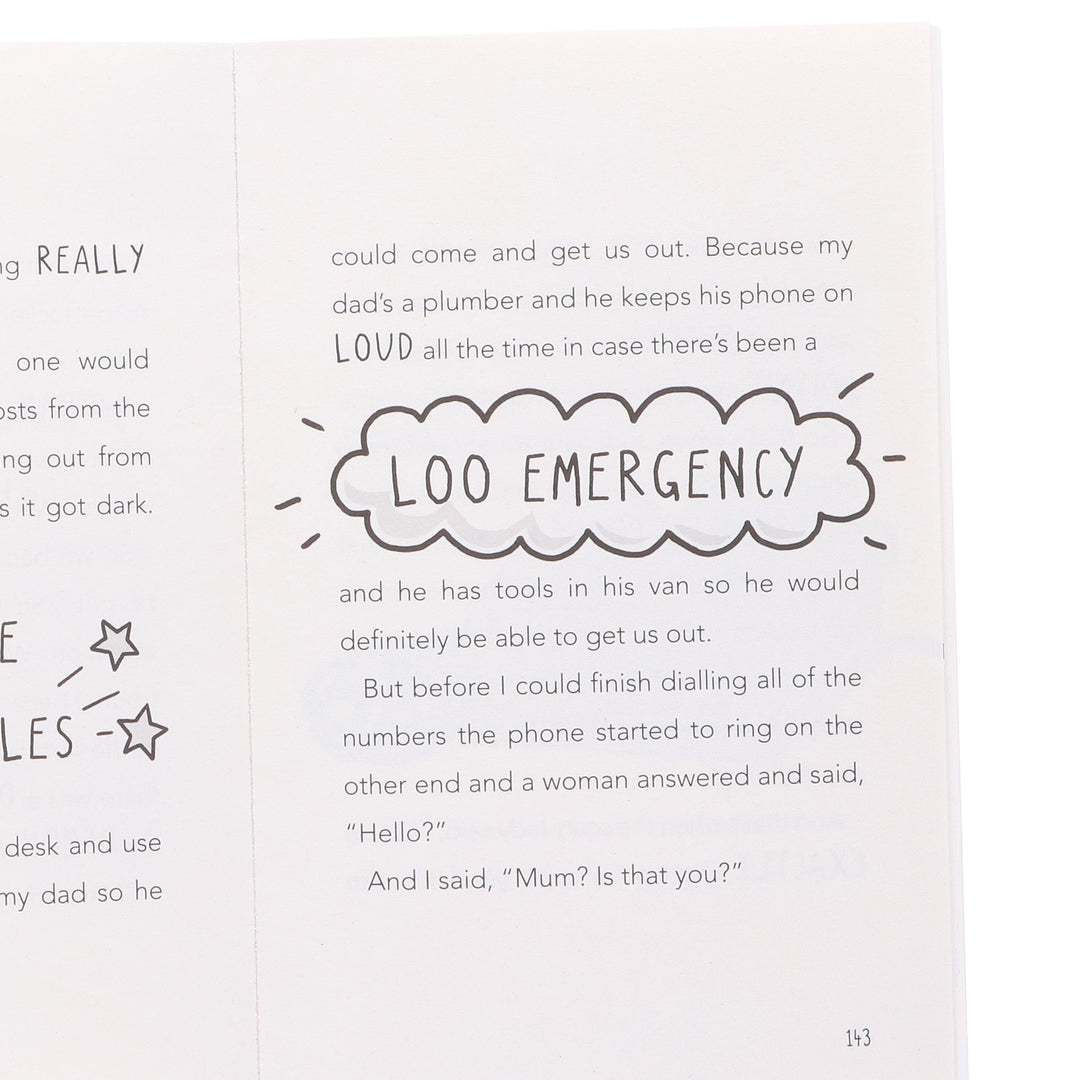 REALLY
one would
from the
out from
it got dark.
desk and use
my dad so he
could come and get us out. Because my
dad's a plumber and he keeps his phone on
LOUD all the time in case there's been a
LOO EMERGENCY
and he has tools in his van so he would
definitely be able to get us out.
But before I could finish dialling all of the
numbers the phone started to ring on the
other end and a woman answered and said,
"Hello?"
And I said, "Mum? Is that you?"
143